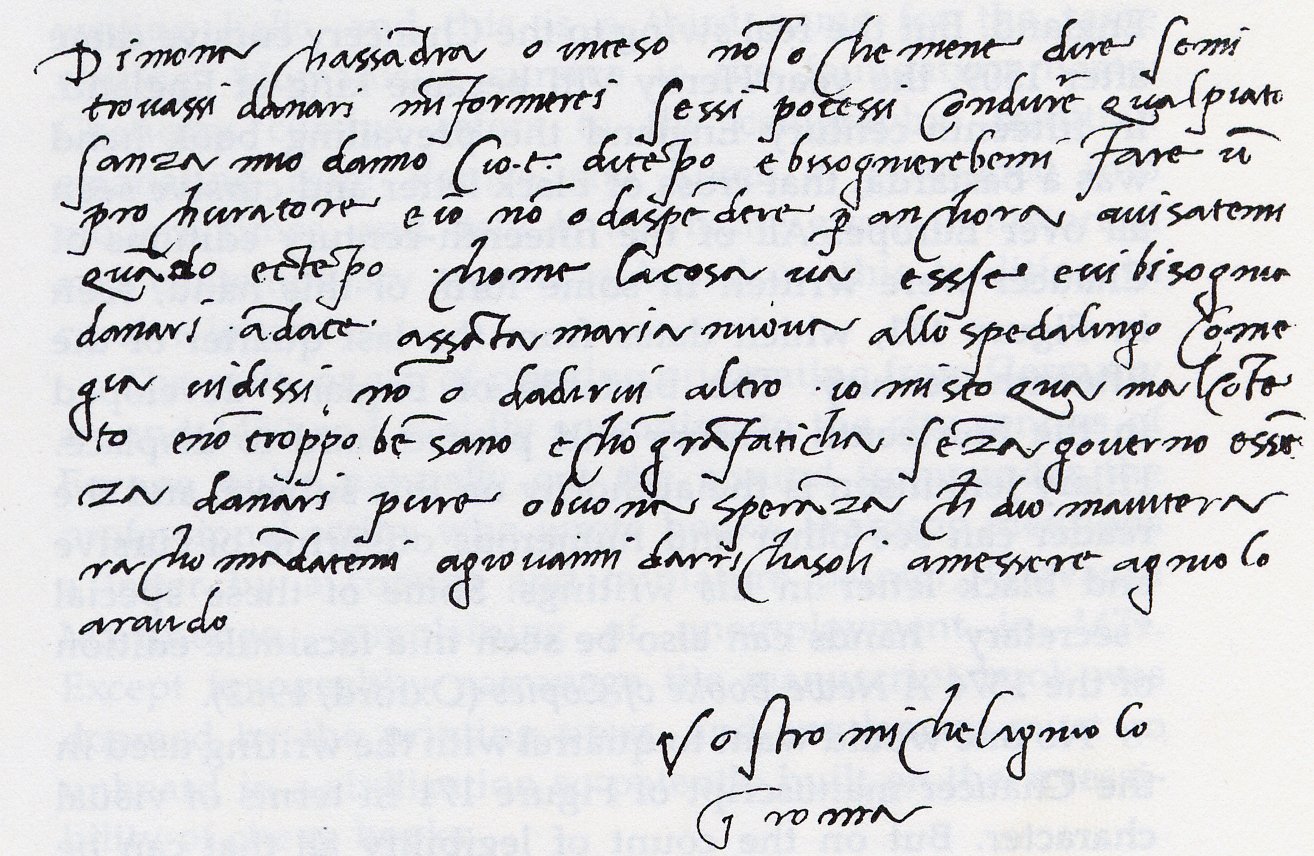 Dimona chassãdra o inteso nõ so che mene dire semi
trovassi danari mĩformerei sessi potessi chondurr̃e qualpiato
sanza mio danno cio.e. ditẽpo e bisognierebemi fare ũ
prochuratore e io nõ o daspẽdere p anchora avisatemi
quãdo ectẽpo chome lacosa va esse e vi bisognia
danari ãdate assãta maria nuova allo spedalingo come
gia vidissi nõ o dadirvi altro io misto qua malchõte
to e nõ troppo bẽ sano e chõ grã faticha sẽza governo essẽ
za danari pure o buona sperãza ch̃ dio maiutera
rachomãdatemi agiovanni darrichasoli amessere agniolo
araudo
Vostro michelagniolo
ĩ roma